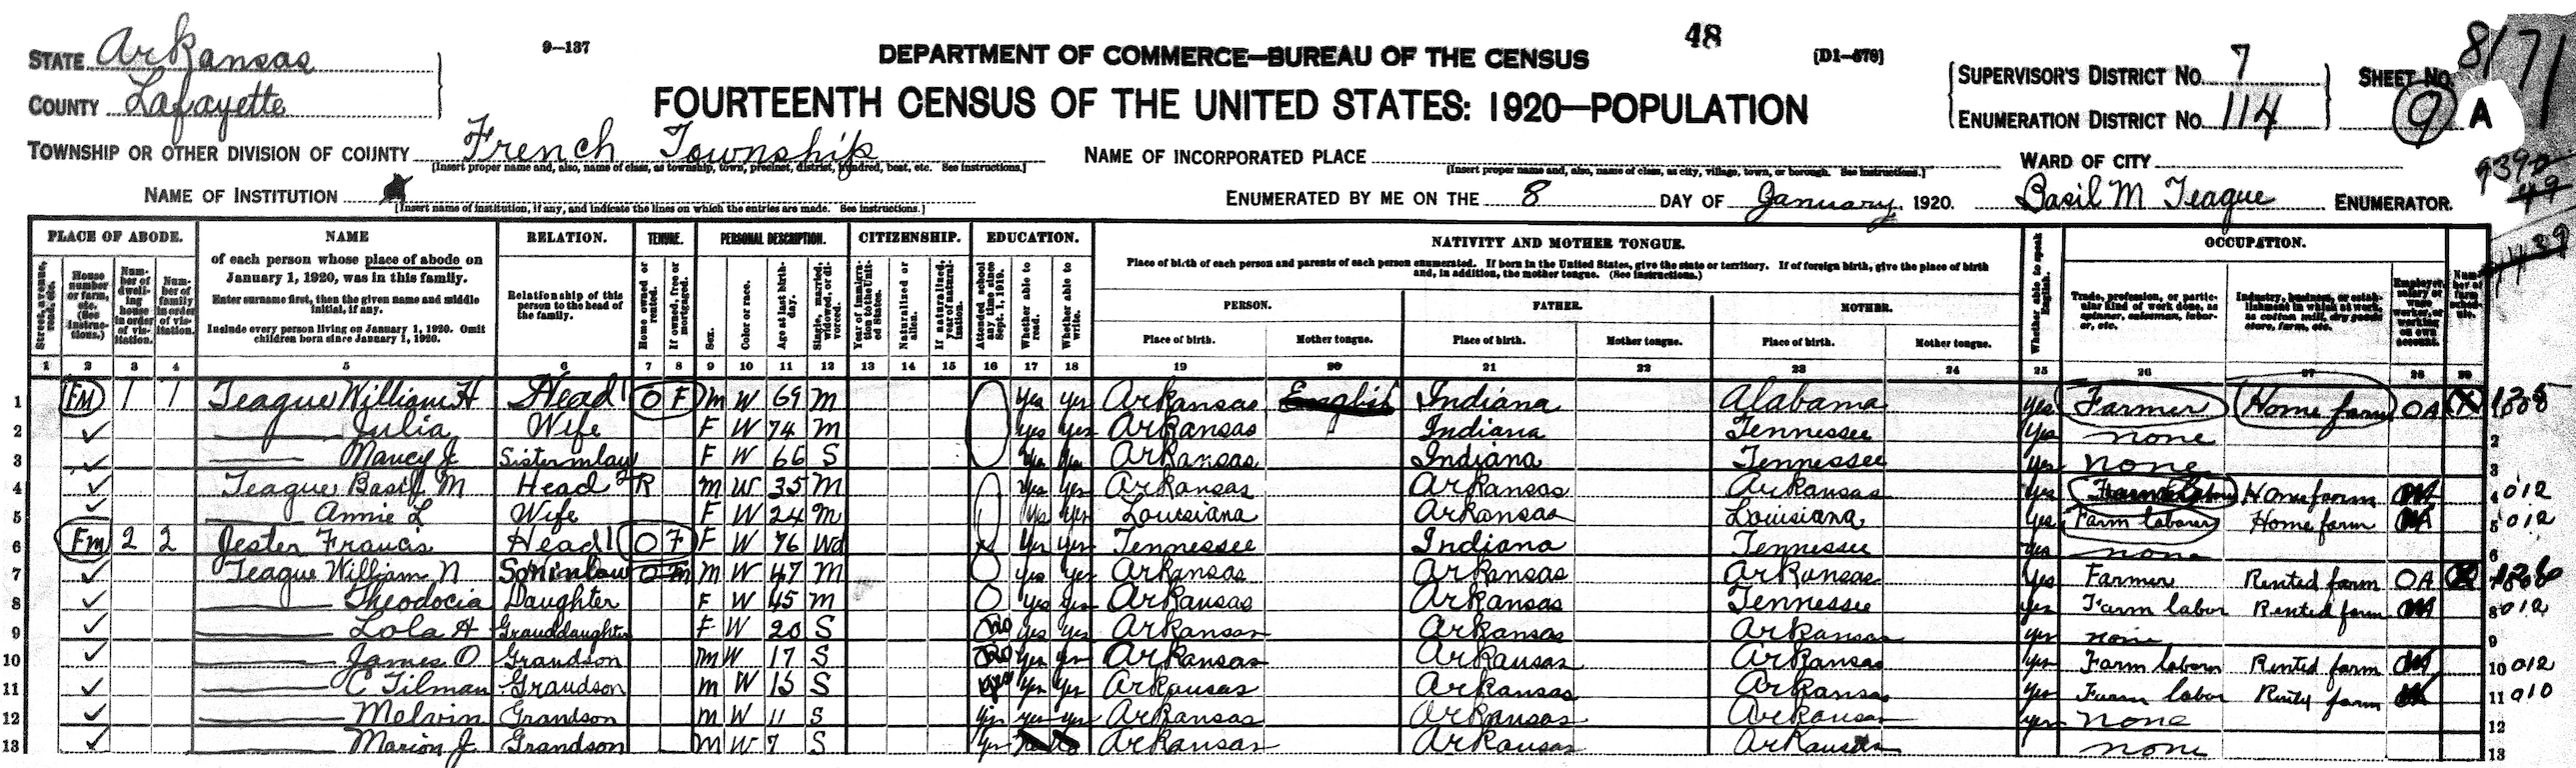 STATE Arkansas
COUNTY Lafayette
9–137
DEPARTMENT OF COMMERCE—BUREAU OF THE CENSUS
48
[D1—578]
FOURTEENTH CENSUS OF THE UNITED STATES: 1920—POPULATION
SUPERVISOR'S DISTRICT No. 7
ENUMERATION DISTRICT No. 114
SHEET No.
9 A
8171
TOWNSHIP OR OTHER DIVISION OF COUNTY French Township
[Insert proper name and, also, name of class, as township, town, precinct, district, hundred, beat, etc. See instructions.]
NAME OF INCORPORATED PLACE
[Insert proper name and, also, name of class, as city, village, town, or borough. See instructions.]
WARD OF CITY
NAME OF INSTITUTION
[Insert name of institution, if any, and indicate the lines on which the entries are made. See instructions.]
ENUMERATED BY ME ON THE 8 DAY OF January, 1920. Basil M Teague ENUMERATOR.
PLACE OF ABODE. NAME RELATION. TENURE. PERSONAL DESCRIPTION. CITIZENSHIP. EDUCATION. NATIVITY AND MOTHER TONGUE. OCCUPATION.
Street, avenue, road, etc.
House number or farm, etc. (See instructions.)
Number of dwelling house in order of visitation.
Number of family in order of visitation.
of each person whose place of abode on January 1, 1920, was in this family.
Enter surname first, then the given name and middle initial, if any.
Include every person living on January 1, 1920. Omit children born since January 1, 1920.
Relationship of this person to the head of the family.
Home owned or rented.
If owned, free or mortgaged.
Sex.
Color or race.
Age at last birthday.
Single, married, widowed, or divorced.
Year of immigration to the United States.
Naturalized or alien.
If naturalized, year of naturalization.
Attended school any time since Sept. 1, 1919.
Whether able to read.
Whether able to write.
Place of birth of each person and parents of each person enumerated. If born in the United States, give the state or territory. If of foreign birth, give the place of birth and, in addition, the mother tongue. (See instructions.)
PERSON. FATHER. MOTHER.
Place of birth. Mother tongue. Place of birth. Mother tongue. Place of birth. Mother tongue.
Whether able to speak English.
Trade, profession, or particular kind of work done, as spinner, salesman, laborer, etc.
Industry, business, or establishment in which at work, as cotton mill, dry goods store, farm, etc.
Employer, salary or wage worker, or working on own account.
Number of farm schedule.
1 2 3 4 5 6 7 8 9 10 11 12 13 14 15 16 17 18 19 20 21 22 23 24 25 26 27 28 29
1 FM 1 1 Teague William H Head 1 O F M W 69 M Yes yes Arkansas English Indiana Alabama yes Farmer Home farm OA X
2 Julia Wife F W 74 M yes yes Arkansas Indiana Tennessee Yes none 2
3 Mancy J Sisterinlaw F W 66 S Arkansas Indiana Tennessee yes none 3
4 Teague Basil M Head 2 R M W 35 M yes yes Arkansas Arkansas Arkansas yes Home farm 4 012
5 Annie L Wife F W 24 M yes yes Louisiana Arkansas Louisiana yes Farm laborer Home farm 5 012
6 Fm 2 2 Jester Francis Head 1 O F F W 76 Wd yes yes Tennessee Indiana Tennessee yes none 6
7 Teague William N Soninlaw O M M W 47 M yes yes Arkansas Arkansas Arkansas yes Farmer Rented farm OA
8 Theodocia Daughter F W 45 M yes yes Arkansas Arkansas Tennessee yes Farm labor Rented farm 8 012
9 Lola H Granddaughter F W 20 S no yes yes Arkansas Arkansas Arkansas yes none 9
10 James O Grandson M W 17 S no yes yes Arkansas Arkansas Arkansas yes Farm labor Rented farm 10 012
11 C Tilman Grandson M W 15 S yes yes yes Arkansas Arkansas Arkansas yes Farm labor farm 11 010
12 Melvin Grandson M W 11 S yes yes yes Arkansas Arkansas Arkansas yes none 12
13 Marion J Grandson M W 7 S yes Arkansas Arkansas Arkansas none 13